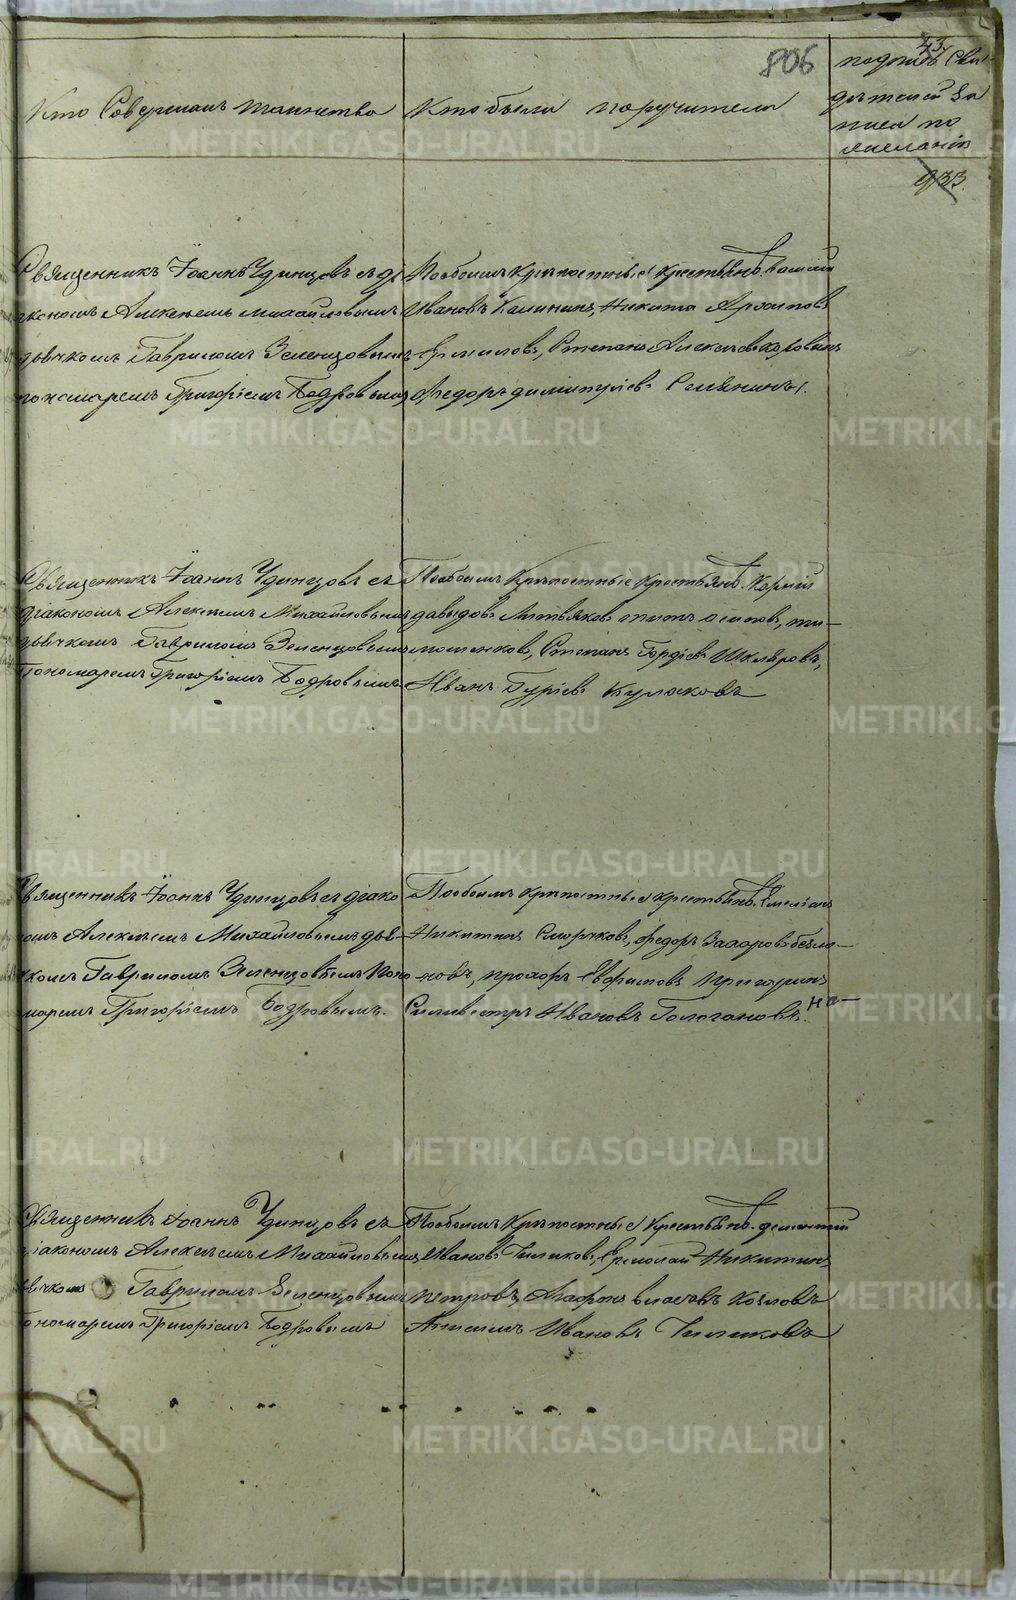 806
43
Кто Совершалъ таинство
Кто были поручители
подпись Сви-
дѣтелей За
писи по
желанію
933.
Священникъ Іоаннъ Удинцовъ съ ді
акономъ Алексѣемъ Михайловымъ
дьячкомъ Гавриломъ Зеленцовымъ
пономаремъ Григоріемъ Бодровымъ
Пообоимъ крѣпостные крестьяне. Василій
Ивановъ Калининъ, Никита Архиповъ
Ермиловъ, Степанъ Алексѣевъ Коровинъ
Федоръ Димитріевъ Селянинъ.
Священникъ Іоаннъ Удинцовъ съ
діакономъ Алексѣемъ Михайловымъ
дьячкомъ Гавриломъ Зеленцовымъ
Пономаремъ Григоріемъ Бодровымъ
Пообоимъ Крѣпостные Крестьяне. Карпій
давыдовъ Литвяковъ титъ осиповъ, ти-
мошенковъ, Степанъ Гордѣевъ Шкляровъ,
Иванъ Гурьевъ Кулаковъ
Священникъ Іоаннъ Удинцовъ съ діако
номъ Алексѣемъ Михайловымъ дья-
чкомъ Гавриломъ Зеленцовымъ Поно
маремъ Григоріемъ Бодровымъ.
Пообоимъ крѣпостные крестьяне. Емельянъ
Никитинъ Сморчковъ, Федоръ Захаровъ
новъ, прохоръ
Силивестръ Ивановъ Гологановъ.
Священникъ Іоаннъ Удинцовъ съ
діакономъ Алексѣемъ Михайловымъ
дьячкомъ Гавриломъ Зеленцовымъ
Пономаремъ Григоріемъ Бодровымъ
Пообоимъ Крѣпостные Крестьяне. дементій
Ивановъ Чиликовъ, Ермолай Никитинъ
петровъ, Агафонъ власовъ Козловъ
Ивановъ Чиликовъ
METRIKI.GASO-URAL.RU